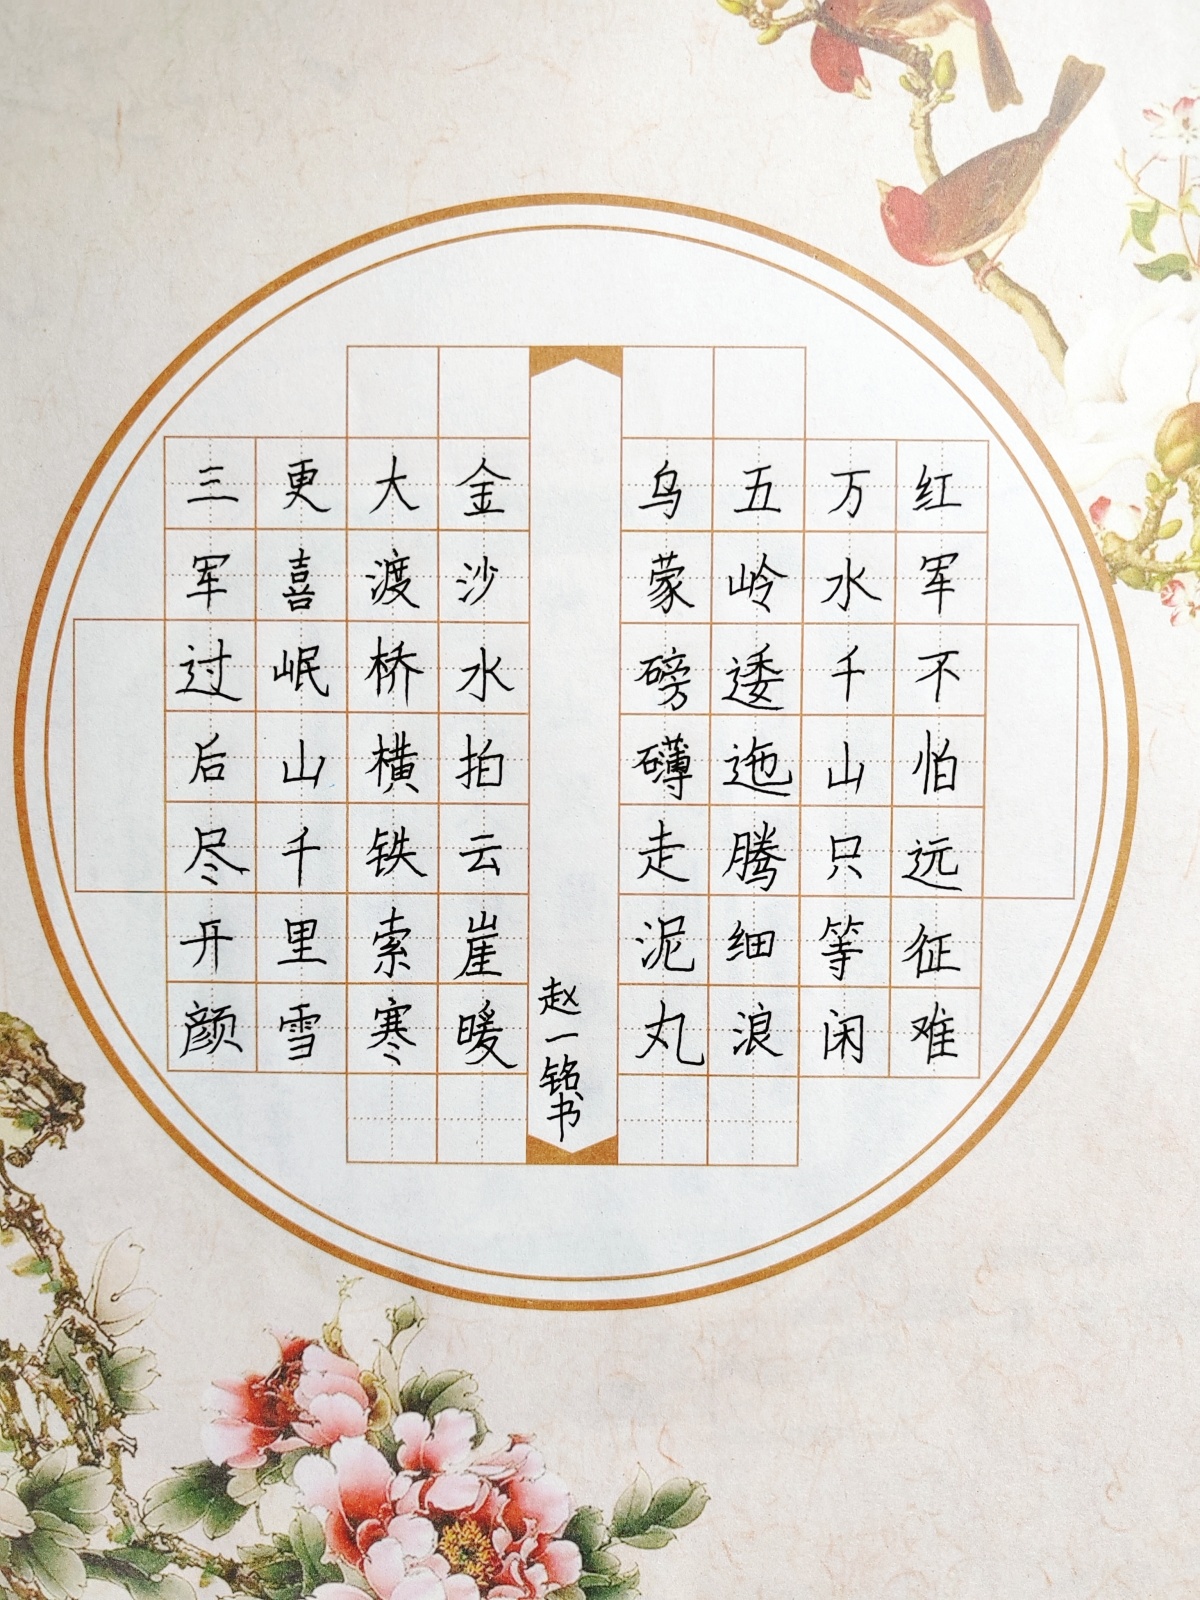 红军不怕远征难
万水千山只等闲
五岭逶迤腾细浪
乌蒙磅礴走泥丸
金沙水拍云崖暖
大渡桥横铁索寒
更喜岷山千里雪
三军过后尽开颜
赵一铭书